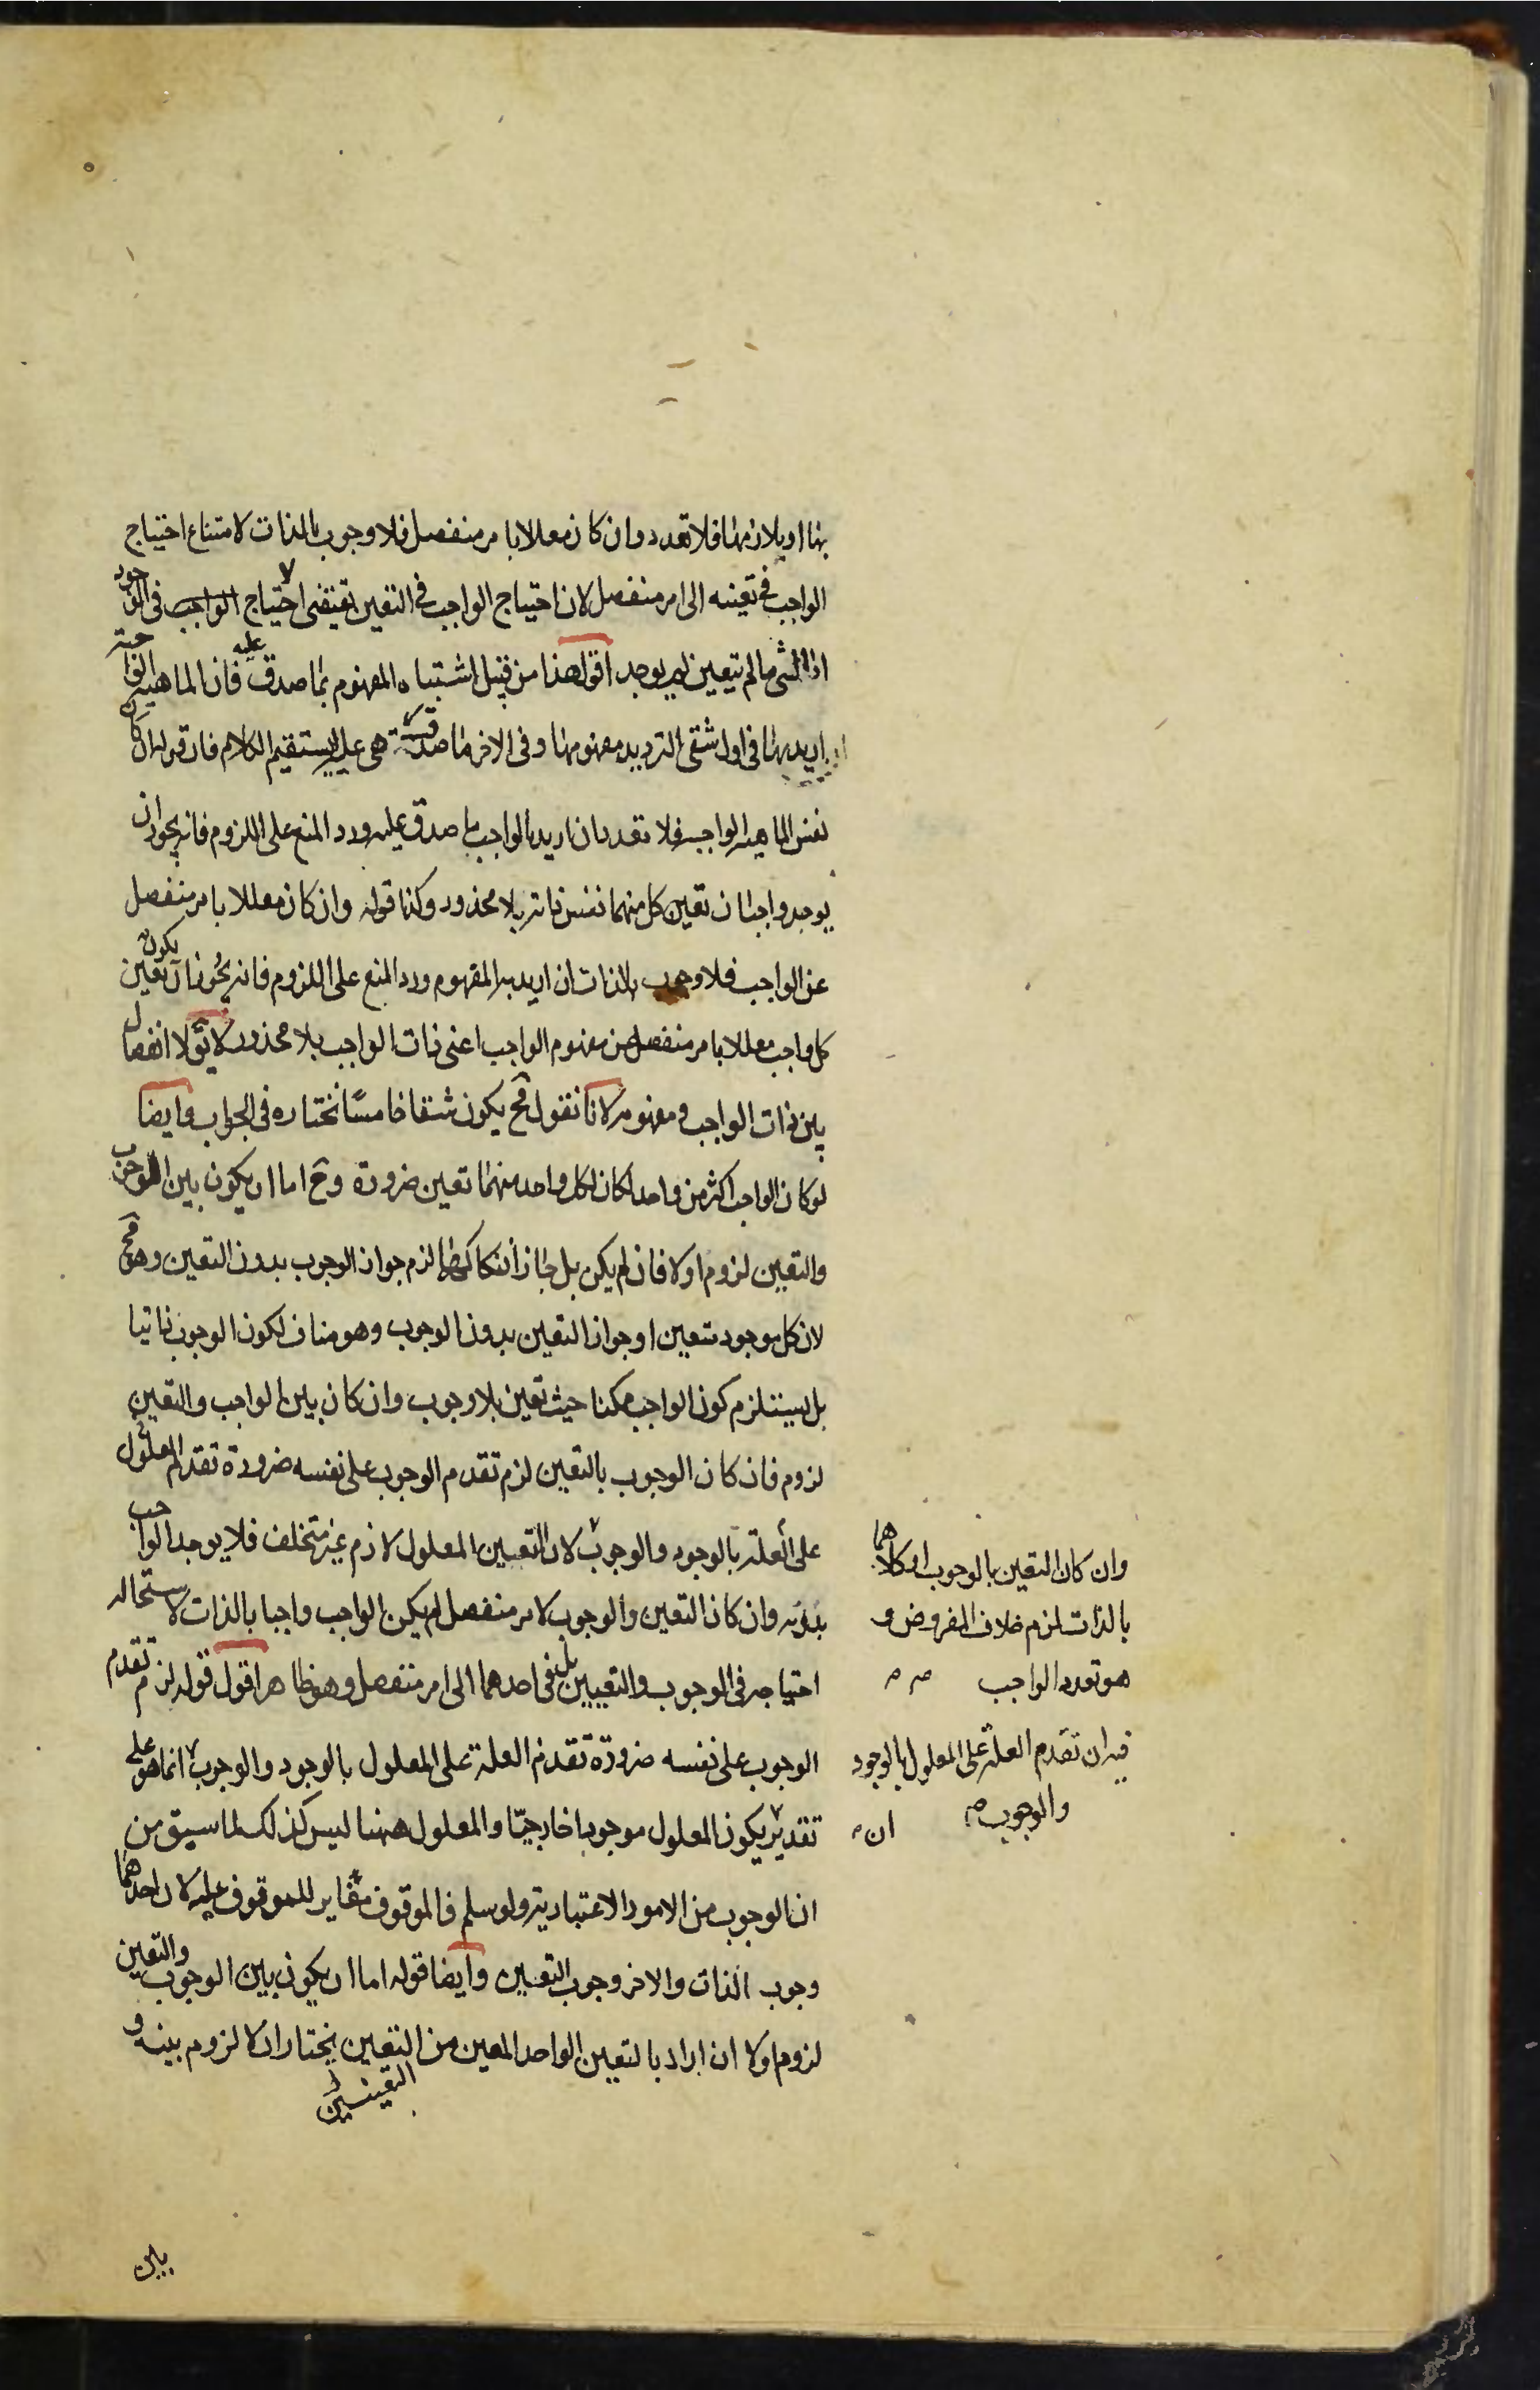 بها او بلازمها فلا تعدد وان كان معللا بامر منفصل فلا وجوب بالذات لامتناع احتياج
الواجب فى تعينه الى امر منفصل لان احتياج الواجب فى التعين يقتضى احتياج الواجب فى الوجود
اذ الشئ ما لم يتعين لم يوجد اقول هذا من قبيل اشتباه المفهوم بما صدق عليه فان الماهية الواجبة
اريد بها فى اول شقى الترديد مفهومها وفى الاخر ما صدقت هى عليه ليستقيم الكلام فان قوله ان كان
نفس الماهية الواجبة فلا تعدد ان اريد بالواجب ما صدق عليه ورد المنع على اللزوم فانه يجوز ان
يوجد واجبان تعين كل منهما نفس ذاته بلا محذور وكذا قوله وان كان معللا بامر منفصل
عن الواجب فلا وجوب بالذات ان اريد به المفهوم ورد المنع على اللزوم فانه يجوز ان يكون تعين
كل واجب معللا بامر منفصل عن مفهوم الواجب اعنى ذات الواجب بلا محذور لا يق لا انفصال
بين ذات الواجب ومفهومه لانا نقول فح يكون شقا خامسا نختاره فى الجواب وايضا
لو كان الواجب اكثر من واحد لكان لكل واحد منهما تعين ضرورة وح اما ان يكون بين الوجوب
والتعين لزوم اولا فان لم يكن بل جاز انفكاكهما لزم جواز الوجوب بدون التعين وهو مح
لان كل موجود متعين او جواز التعين بدون الوجوب وهو مناف لكون الوجوب ذاتيا
بل يستلزم كون الواجب ممكنا حيث تعين بلا وجوب وان كان بين الواجب والتعين
لزوم فان كان الوجوب بالتعين لزم تقدم الوجوب على نفسه ضرورة تقدم المعلول
على العلة بالوجود والوجوب لان التعين المعلول لازم غير متخلف فلا يوجد الواجب
بدونه وان كان التعين والوجوب لامر منفصل لم يكن الواجب واجبا بالذات لاستحالة
احتياجه فى الوجوب والتعيين بل فى احدهما الى امر منفصل وهو ظاهر اقول قوله لزم تقدم
الوجوب على نفسه ضرورة تقدم العلة على المعلول بالوجود والوجوب انما هو على
تقدير يكون المعلول موجودا خارجيا والمعلول ههنا ليس كذلك لما سبق من
ان الوجوب من الامور الاعتبارية ولو سلم فالموقوف مغاير للموقوف عليه لان احدهما
وجوب الذات والاخر وجوب التعين وايضا قوله اما ان يكون بين الوجوب والتعين
لزوم اولا ان اراد بالتعين الواحد المعين من التعين يختار ان لا لزوم بينه و
التعينين
بين
وان كان التعين بالوجوب او كلاهما
بالذات لزم خلاف المفروض و
هو تعدد الواجب
فيه ان تقدم العلة على المعلول بالوجود
والوجوب
ان